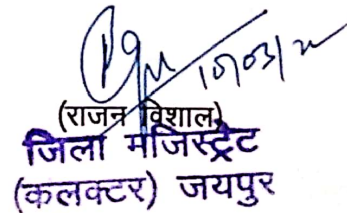 10/03/22
(राजन विशाल)
जिला मजिस्ट्रेट
(कलक्टर) जयपुर